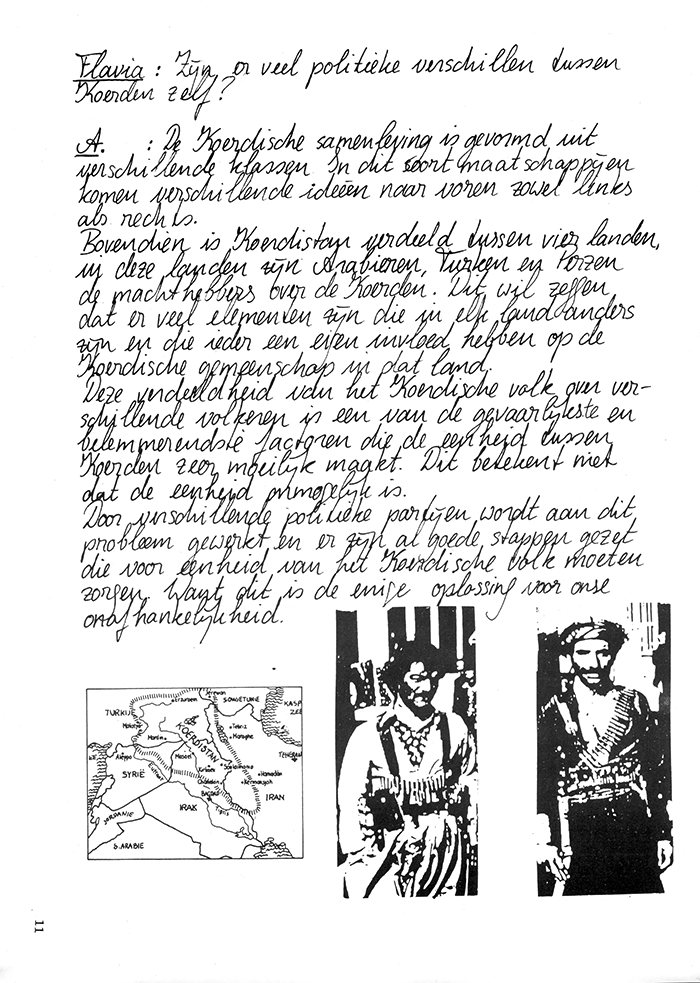 Flavia : Zijn er veel politieke verschillen tussen
Koerden zelf?
A. : De Koerdische samenleving is gevormd uit
verschillende klassen. In dit soort maatschappijen
komen verschillende ideeën naar voren zowel links
als rechts.
Bovendien is Koerdistan verdeeld tussen vier landen,
in deze landen zijn Arabieren, Turken en Perzen
de machthebbers over de Koerden. Dit wil zeggen
dat er veel elementen zijn die in elk land anders
zijn en die ieder een eigen invloed hebben op de
Koerdische gemeenschap in dat land.
Deze verdeeldheid van het Koerdische volk over ver-
schillende volkeren is een van de gevaarlijkste en
belemmerendste factoren die de eenheid tussen
Koerden zeer moeilijk maakt. Dit betekent niet
dat de eenheid onmogelijk is.
Door verschillende politieke partijen wordt aan dit
probleem gewerkt en er zijn al goede stappen gezet
die voor eenheid van het Koerdische volk moeten
zorgen. Want dit is de enige oplossing voor onse
onafhankelijkheid.
TURKIJE
Erzurum
Erewan
SOWJETUNIE
KASP.
ZEE
KOERDISTAN
Malatya
Mardin
Tebriz
Aleppo
Mosel
TEHERAN
SYRIË
Kirkuk
Hamadan
Kermanşah
BAĞDAD
IRAN
IRAK
Tigris
JORDANIE
S. ARABIE
11